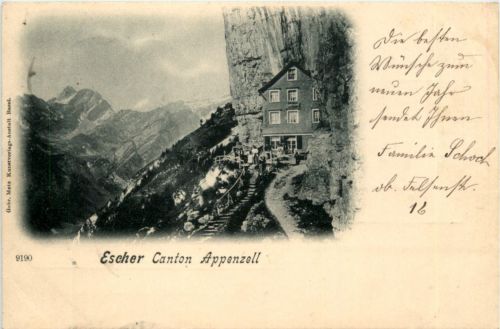 Die besten
Wünsche zum
neuen Jahr
sendet Ihnen
Familie Schoch
ob. Felsenstr.
12
Gebr. Metz Kunstverlags-Anstalt Basel.
9190
Escher Canton Appenzell